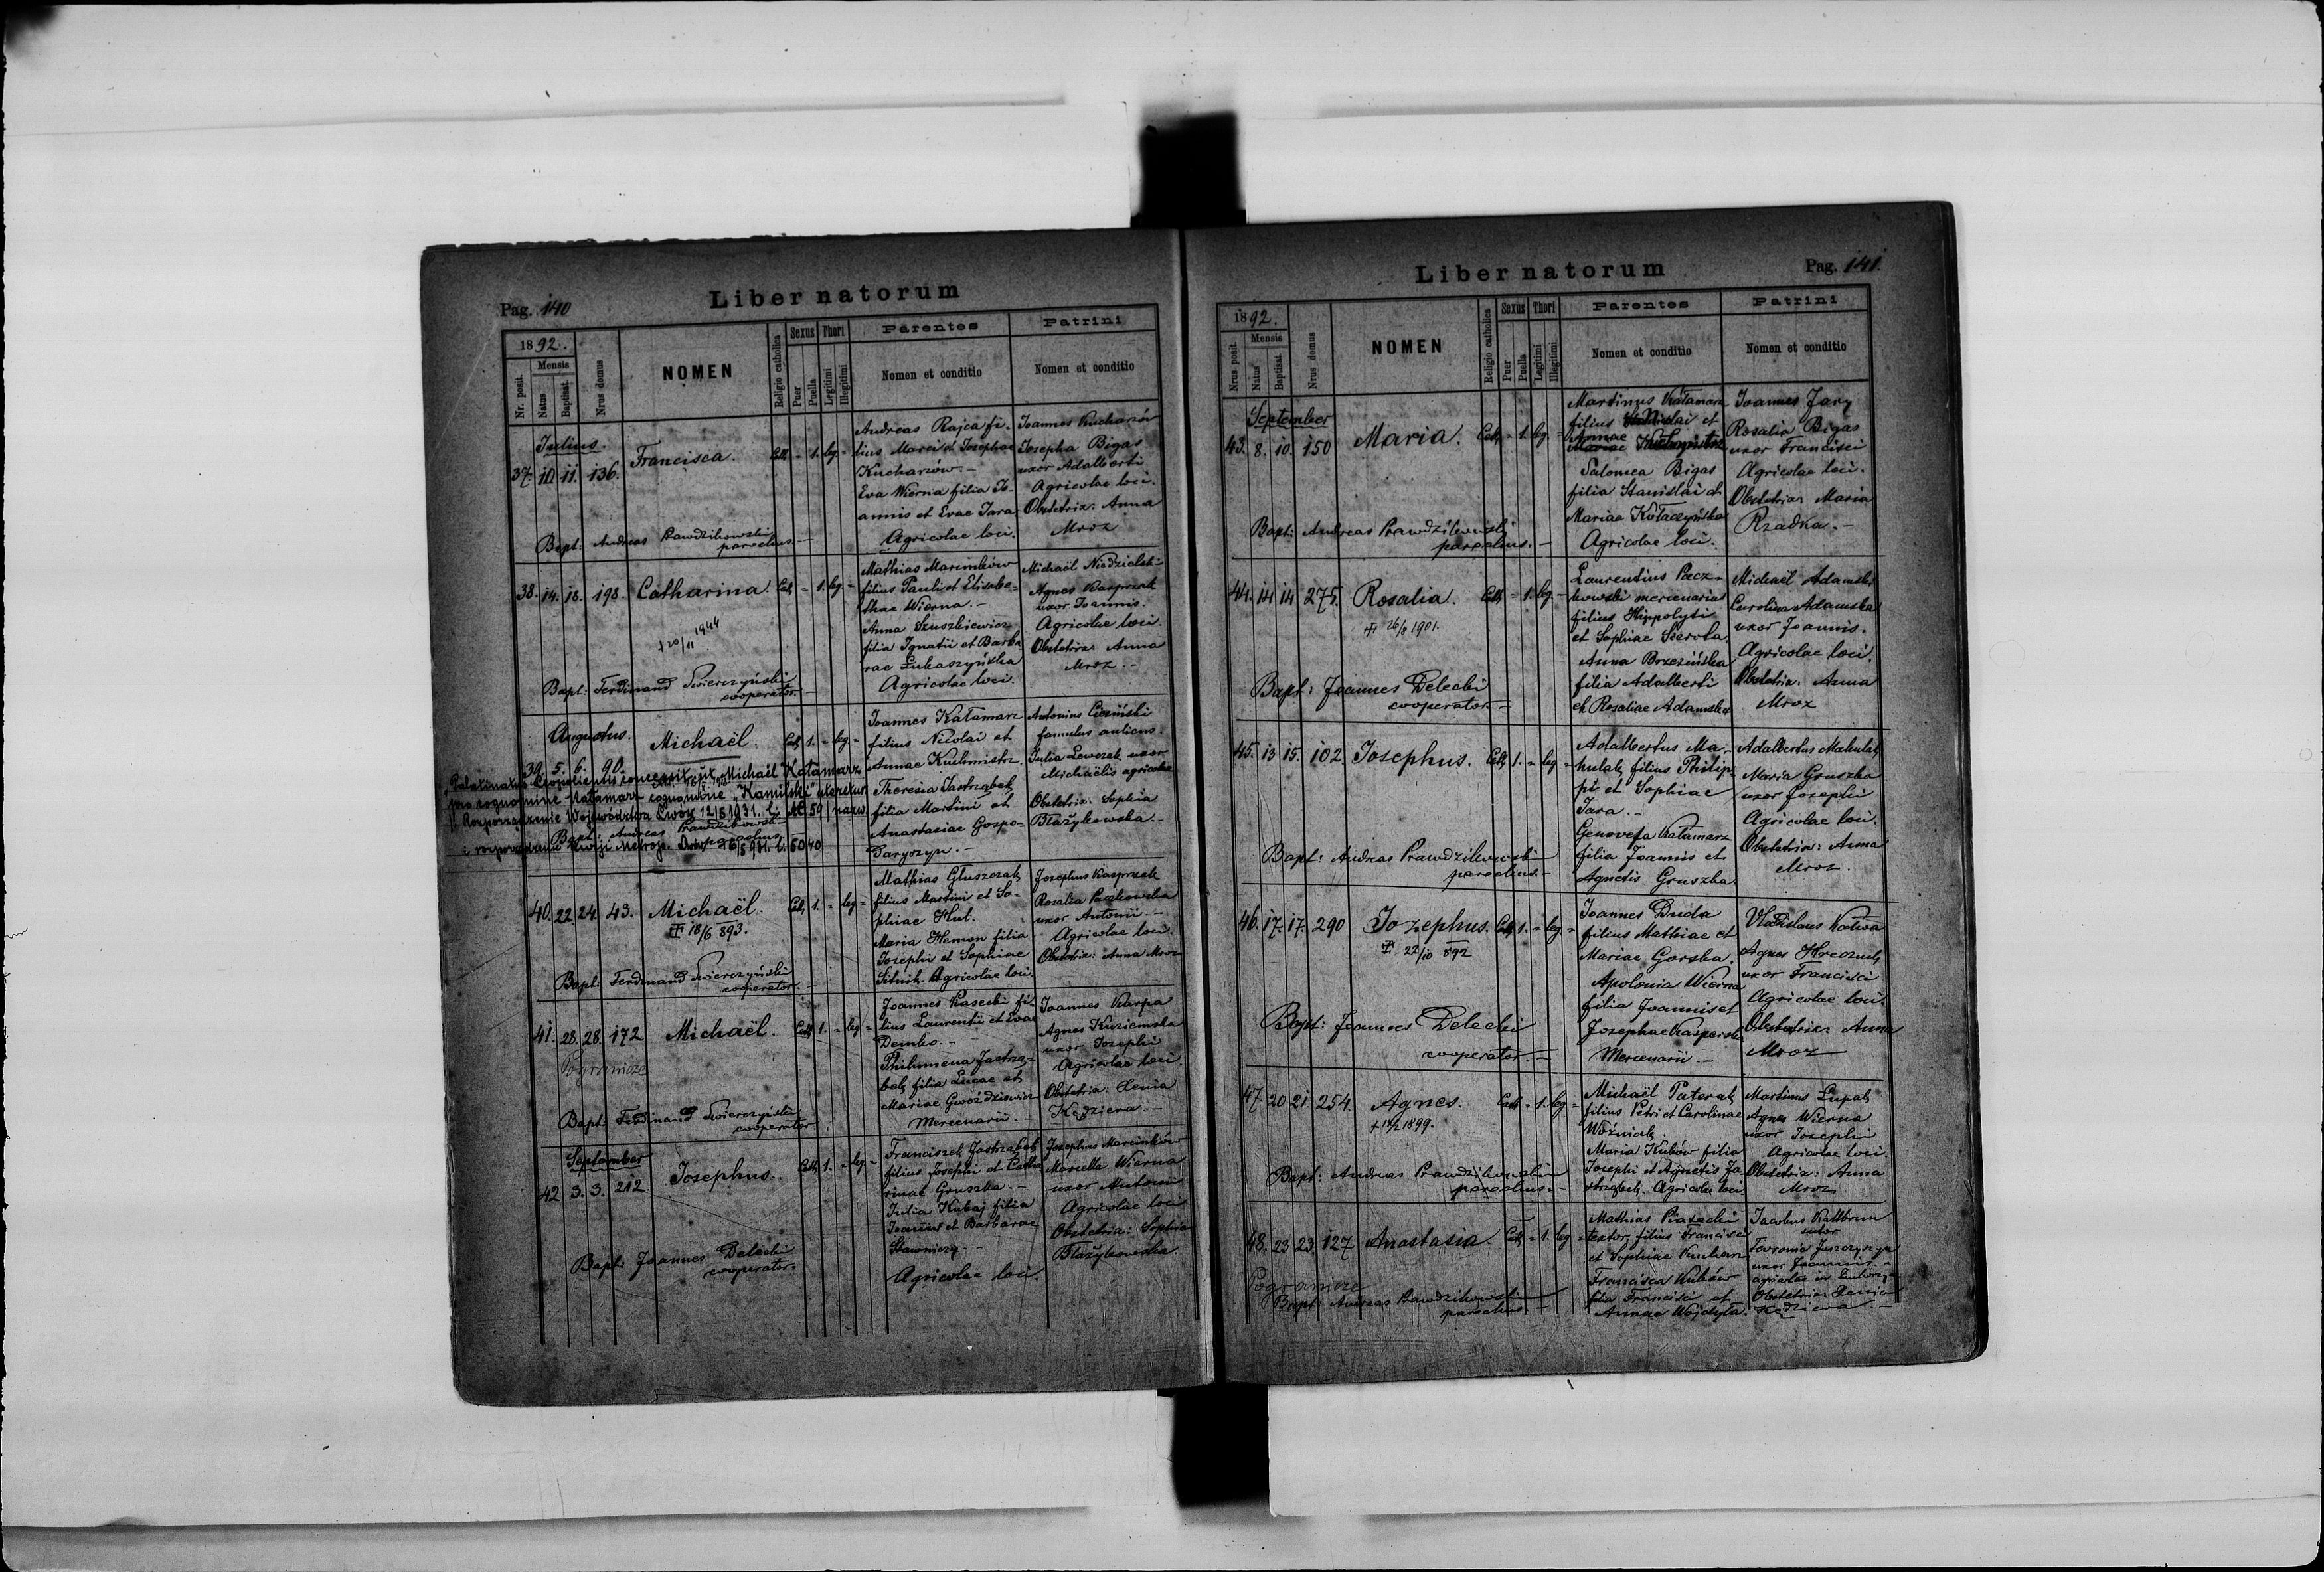 Pag. 140
Liber natorum
1892.
Nr. posit.
Mensis
Natus
Baptisat.
Nrus domus
NOMEN
Religio catholica
Sexus
Puer
Puella
Thori
Legitimi
Illegitimi
Parentes
Nomen et conditio
Patrini
Nomen et conditio
Julius.
37. 10 11. 136. Francisca. Cath. - 1. leg. -
Andreas Rajca fi-
lius Marci et Josephae
Kucharów.-
Eva Wierna filia Jo-
annis et Evae Jara
Agricolae loci.
Joannes Kucharów
Josepha Bigas
uxor Adalberti
Agricolae loci.
Obstetrix: Anna
Mroz
Bapt: Andreas Prawdzikowski
parochus.-
38. 14. 16. 198. Catharina. Cath. - 1. leg. -
+ 20/11 1944
Mathias Marcinków
filius Pauli et Elisabe-
thae Wierna.-
Anna Szuszkiewicz
filia Ignatii et Barba
rae Lukaszyńska
Agricolae loci.
Michaël Niedzielski
Agnes Kasprzak
uxor Joannis.
Agricolae loci.
Obstetrix: Anna
Mroz.-
Bapt: Ferdinand Swierczyński
cooperator.-
Augustus.
39. 5. 6. 90. Michaël. Cath. 1. - leg. -
Joannes Kałamarz
filius Nicolai et
Annae Kuchmistrz.
Theresia Jastrząbek
filia Martini et
Anastasiae Gospo-
daryszyn.-
Antonius Cieśiński
famulus aulicus.
Julia Lewczak uxor
Michaëlis agricolae
Obstetrix: Sophia
Błażykowska.-
Palatinatus Leopoliensis concessit ut Michaël Kałamarz
pro cognomine Kałamarz cognomine "Kamiński" uteretur
Rozporządzenie Województwa Lwów 12/8 1931. L: AC 59/nazw
Bapt: Andreas Prawdzikowski
parochus
40. 22. 24. 43. Michaël. Cath. 1. - leg. -
+ 18/6 893.
Mathias Głuszczak
filius Martini et So-
phiae Hul.
Maria Hemon filia
Josephi et Sophiae
Sitnik. Agricolae loci.
Josephus Kasprzak
Rosalia Paczkowska
uxor Antonii.-
Agricolae loci.
Obstetrix: Anna Mroz
Bapt: Ferdinand Swierczyński
cooperator.-
41. 28. 28. 172 Michaël. Cath. 1. - leg. -
Pogranicze
Joannes Piasecki fi-
lius Laurentii et Evae
Demko.-
Philumena Jastrzą-
bek filia Lucae et
Mariae Gwoździewicz
Mercenarii.-
Joannes Karpa
Agnes Kuziemska
uxor Josephi
Agricolae loci
Obstetrix: Xenia
Kędziera.-
Bapt: Ferdinand Swierczyński
cooperator.
September
42 3. 3. 212. Josephus. Cath. 1. - leg. -
Franciszek Jastrząbek
filius Josephi et Catha
rinae Gruszka.-
Julia Kubaj filia
Joannis et Barbarae
Sławniczy.-
Agricolae loci.
Josephus Marcinków
Marcella Wierna
uxor Antonii
Agricolae loci
Obstetrix: Sophia
Błażykowska
Bapt: Joannes Delecki
cooperator.
Liber natorum
Pag. 141.
1892.
Nrus posit.
Mensis
Natus
Baptisat.
Nrus domus
NOMEN
Religio catholica
Sexus
Puer
Puella
Thori
Legitimi
Illegitimi
Parentes
Nomen et conditio
Patrini
Nomen et conditio
September
43. 8. 10. 150 Maria. Cath. - 1. leg. -
Martinus Kałamarz
filius Nicolai et
Annae
Salomea Bigas
filia Stanislai et
Mariae Kołaczyńska
Agricolae loci.
Joannes Jary
Rosalia Bigas
uxor Francisci
Agricolae loci.
Obstetrix: Maria
Rzadka.-
Bapt: Andreas Prawdzikowski
parochus.-
44. 14 14 275. Rosalia. Cath. - 1. leg. -
+ 26/8 1901.
Laurentius Pacz-
kowski mercenarius
filius Hippolyti
et Sophiae Szerola.
Anna Brzezińska
filia Adalberti
et Rosaliae Adamska
Michaël Adamski
Carolina Adamska
uxor Joannis.
Agricolae loci.
Obstetrix: Anna
Mroz
Bapt: Joannes Delecki
cooperator.-
45. 13 15. 102. Josephus. Cath. 1. - leg. -
Adalbertus Ma-
kulak, filius Philip-
pi et Sophiae
Jara.-
Genovefa Kałamarz
filia Joannis et
Agnetis Gruszka
Adalbertus Makulak
Maria Gruszka
uxor Josephi
Agricolae loci.
Obstetrix: Anna
Mroz.
Bapt: Andreas Prawdzikowski
parochus.-
46. 17. 17. 290 Josephus. Cath. 1. - leg. -
+ 22/10 892
Joannes Duda
filius Mathiae et
Mariae Gorska.
Apolonia Wierna
filia Joannis et
Josephae Kasperski
Mercenarii.-
Vladislaus Kałwa
Agnes Hreczuch
uxor Francisci
Agricolae loci.
Obstetrix: Anna
Mroz
Bapt: Joannes Delecki
cooperator.-
47. 20 21. 254. Agnes. Cath. - 1. leg. -
1899.
Michaël Paterak
filius Petri et Carolinae
Woźniak.
Maria Kubów filia
Josephi et Agnetis Ja
strząbek. Agricolae loci
Martinus Łupak
Agnes Wierna
uxor Josephi
Agricolae loci.
Obstetrix: Anna
Mroz
Bapt: Andreas Prawdzikowski
parochus.-
48. 23 23. 127 Anastasia. Cath. - 1. leg. -
Pogranicze
Mathias Piasecki
textor, filius Francisci
et Sophiae Kucharz
Francisca Kubów
filia Francisci et
Annae Wojdyła.
Jacobus Kaltbrun
sutor
Fevronia Juszczyszyn
uxor Joannis.-
agricolae in
Obstetrix: Xenia
Kędziera.-
Bapt: Andreas Prawdzikowski
parochus.-